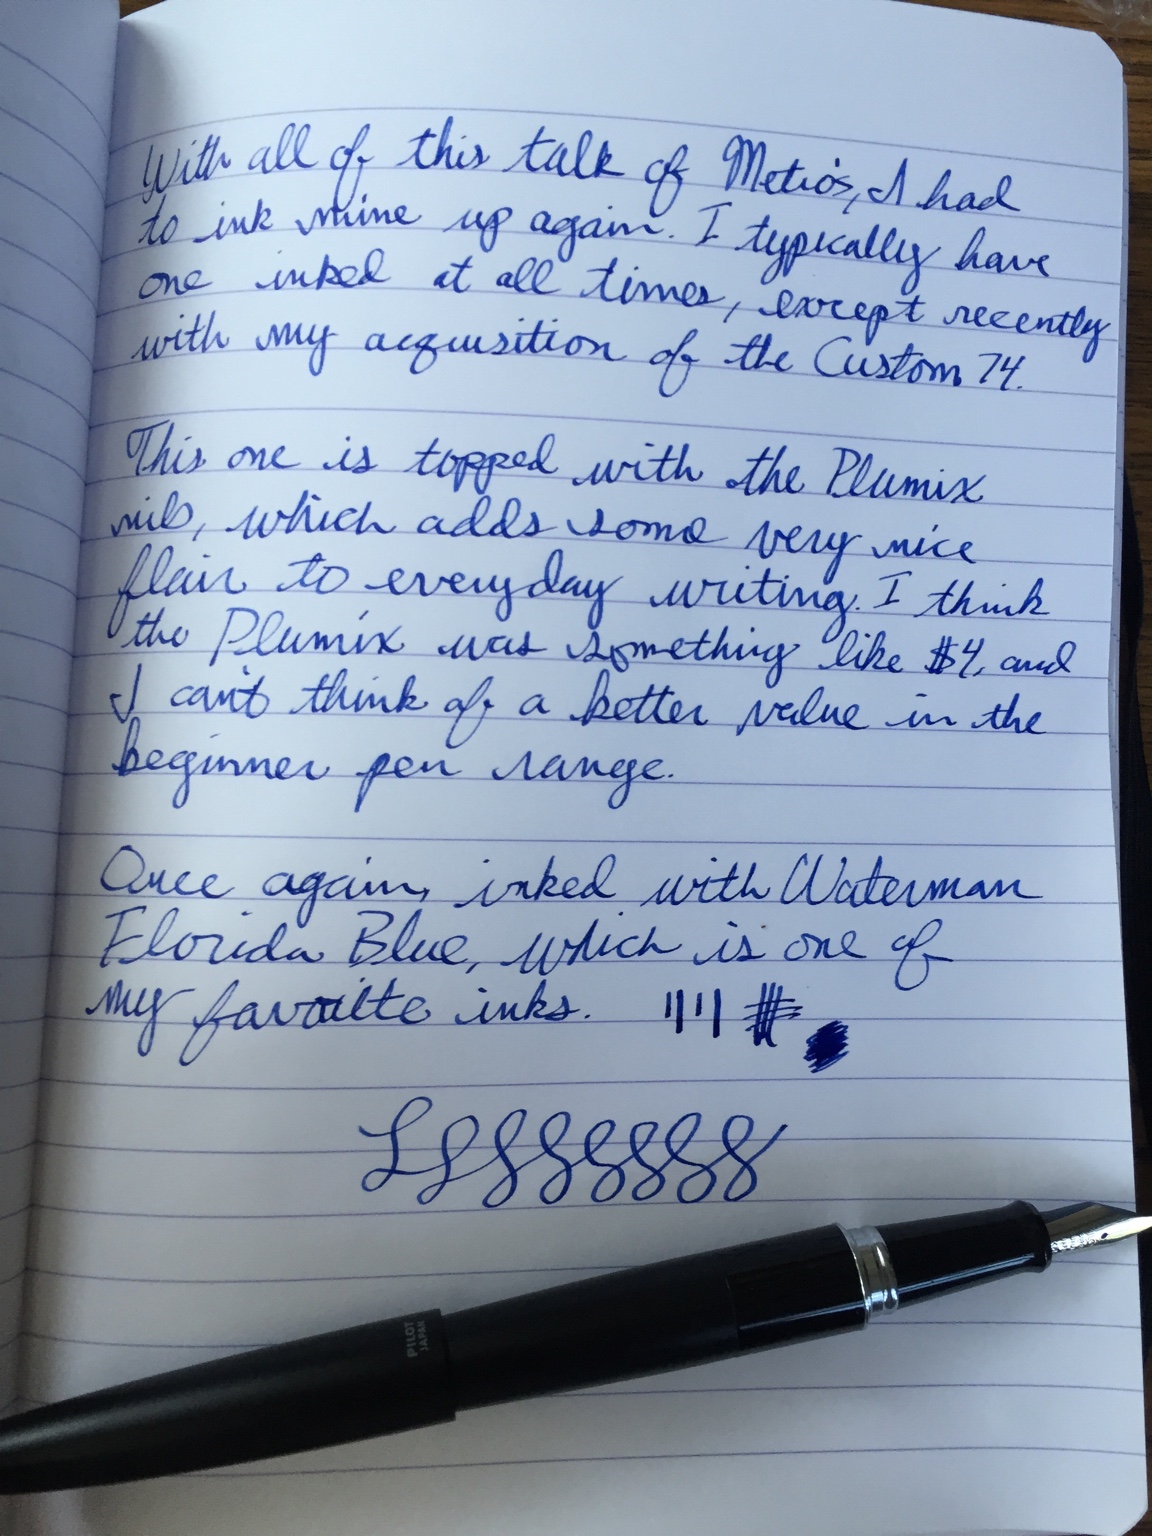 With all of this talk of Metro's, I had
to ink mine up again. I typically have
one inked at all times, except recently
with my acquisition of the Custom 74.
This one is topped with the Plumix
nib, which adds some very nice
flair to everyday writing. I think
the Plumix was something like $4, and
I can't think of a better value in the
beginner pen range.
Once again, inked with Waterman
Florida Blue, which is one of
my favorite inks.
PILOT
JAPAN